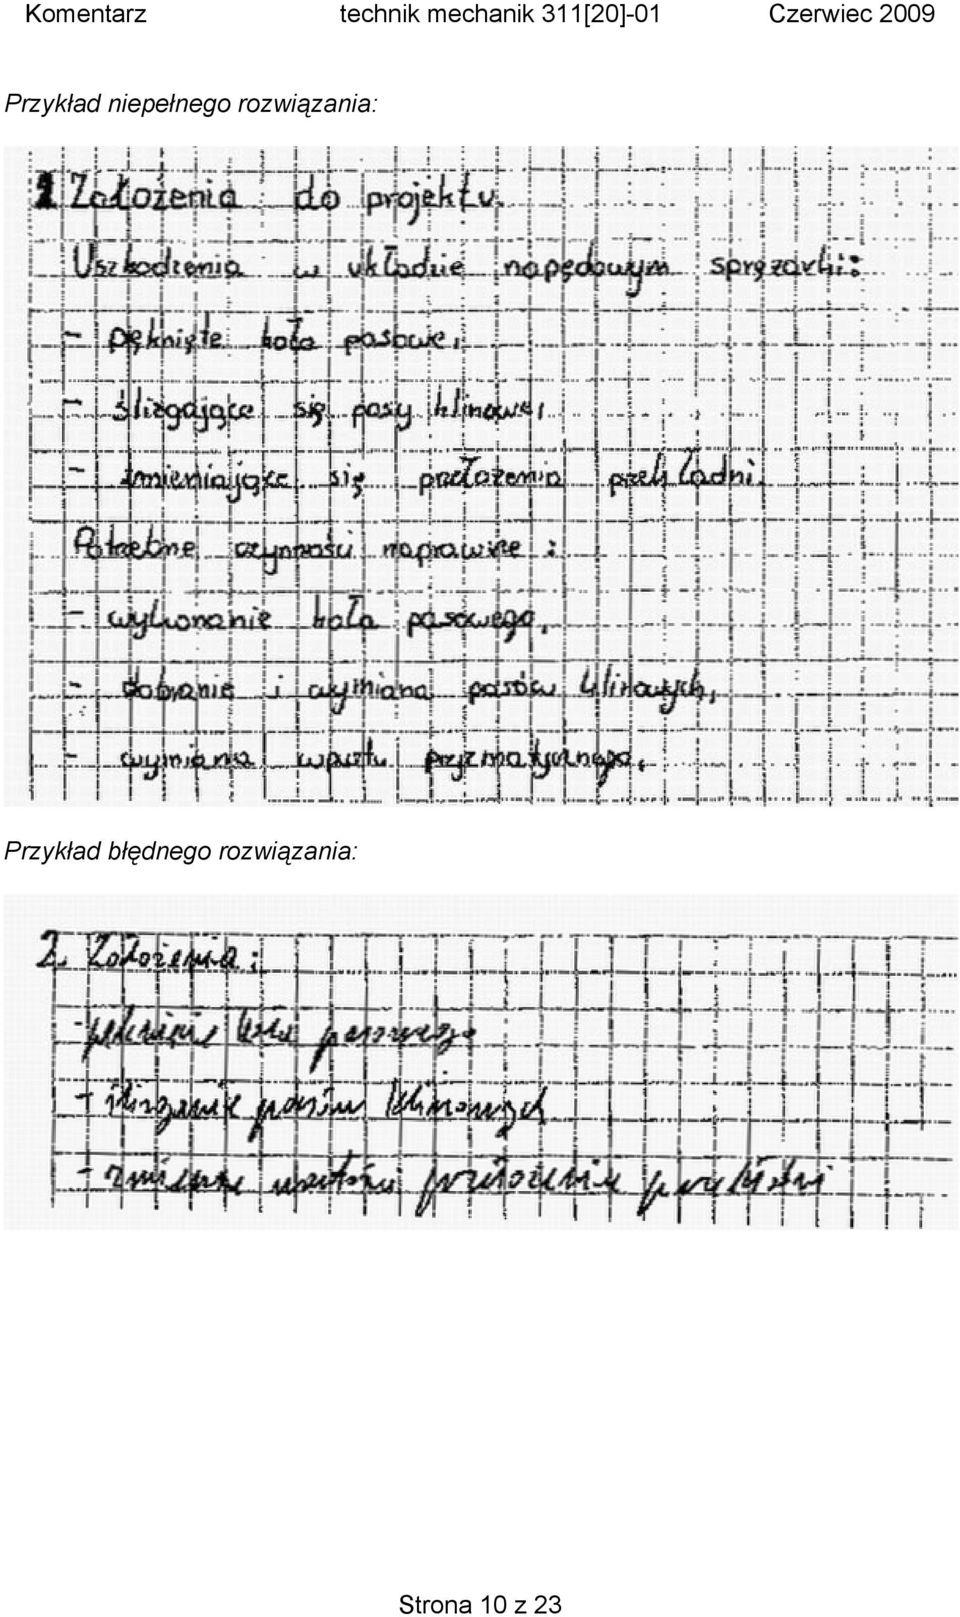 Komentarz technik mechanik 311[20]-01 Czerwiec 2009
Przykład niepełnego rozwiązania:
2 Założenia do projektu.
Uszkodzenia w układzie napędowym sprężarki:
- pęknięte koło pasowe,
- ślizgające się pasy klinowe,
- zmieniające się przełożenia przekładni.
Potrzebne czynności naprawcze:
- wykonanie koła pasowego,
- dobranie i wymiana pasów klinowych,
- wymiana wpustu pryzmatycznego.
Przykład błędnego rozwiązania:
2. Założenia:
- pęknięcie koła pasowego
- ślizganie pasów klinowych
- zmienne wartości przełożenia przekładni
Strona 10 z 23